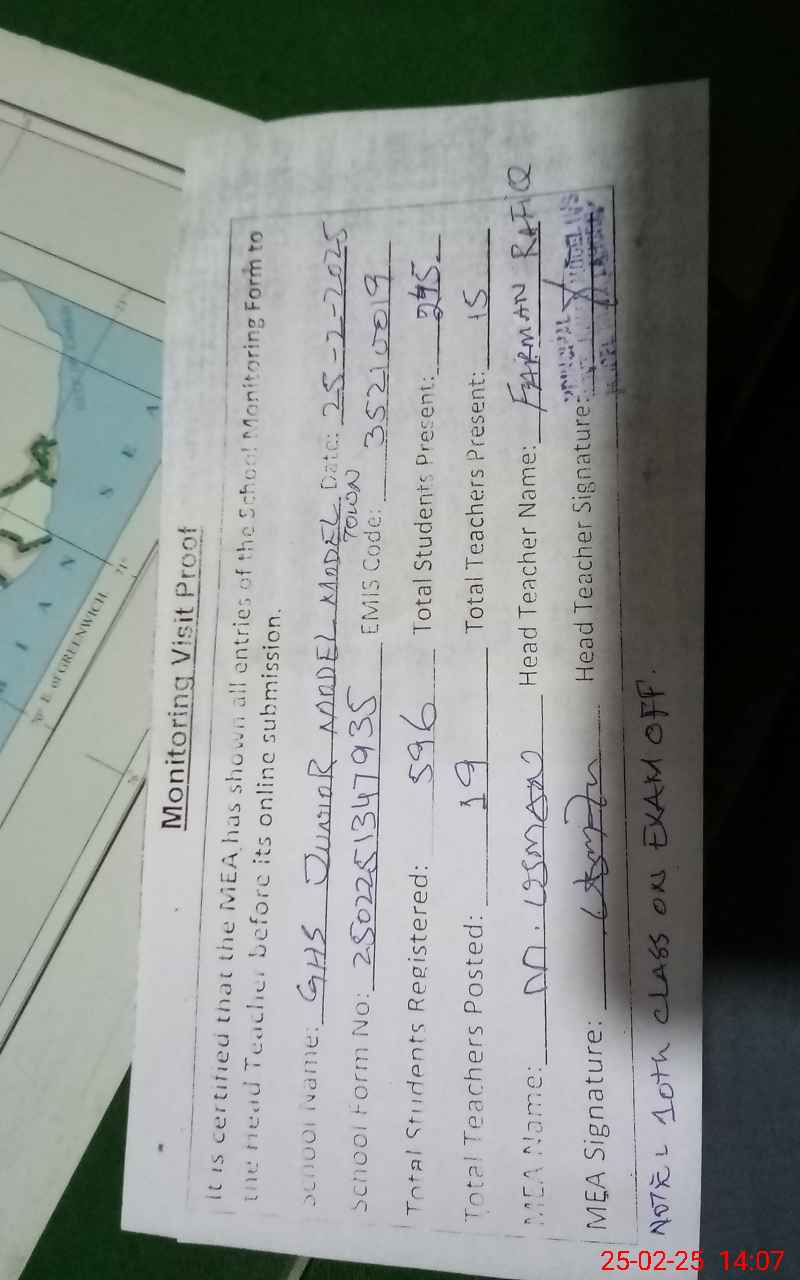 Monitoring Visit Proof
It is certified that the MEA has shown all entries of the School Monitoring Form to
the Head Teacher before its online submission.
School Name: GHS JUNIOR MODEL MODEL TOWN Date: 25-2-2025
School Form No: 2502251347935 EMIS Code: 35210019
Total Students Registered: 596 Total Students Present: 295
Total Teachers Posted: 19 Total Teachers Present: 15
MEA Name: M. USMAN Head Teacher Name: FARMAN RAFIQ
MEA Signature: Usman Head Teacher Signature:
NOTE: 10th CLASS ON EXAM OFF.
E of GREENWICH
71°
S E A
I A N
25-02-25 14:07